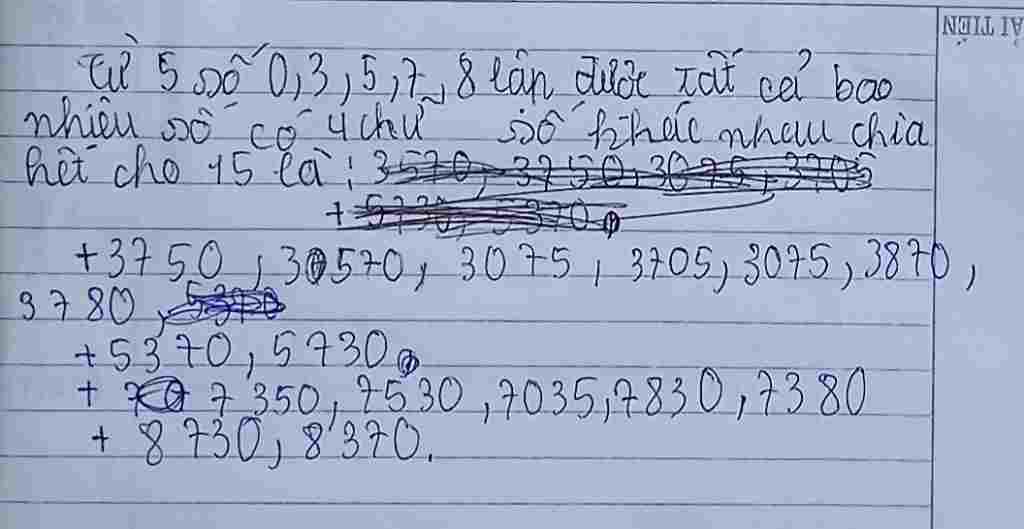 ẢI TIẾN
Từ 5 số 0, 3, 5, 7, 8 lân được tất cả bao
nhiêu số có 4 chữ số khác nhau chia
hết cho 15 là : 3570, 3750, 3075, 3705
+ 5730, 5370.
+3750, 30570, 3075, 3705, 3075, 3870,
3780, 5370
+ 5370, 5730.
+ 7350, 7530, 7035, 7830, 7380
+ 8730, 8370.